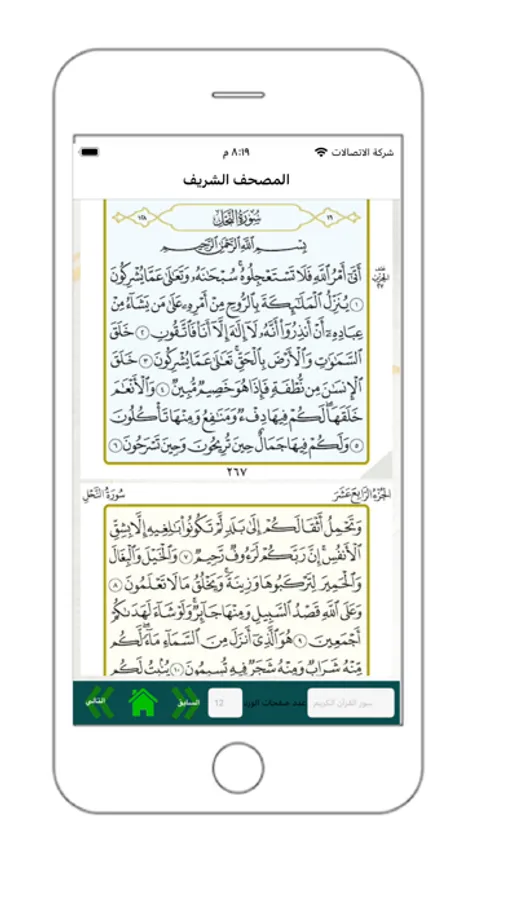 شركة الاتصالات ٨:١٩ م
المصحف الشريف
١٦ سُورَةُ النَّحْلِ ١٢٨
بِسْمِ اللَّهِ الرَّحْمَٰنِ الرَّحِيمِ
أَتَىٰٓ أَمْرُ ٱللَّهِ فَلَا تَسْتَعْجِلُوهُ ۚ سُبْحَـٰنَهُۥ وَتَعَـٰلَىٰ عَمَّا يُشْرِكُونَ
١ يُنَزِّلُ ٱلْمَلَـٰٓئِكَةَ بِٱلرُّوحِ مِنْ أَمْرِهِۦ عَلَىٰ مَن يَشَآءُ مِنْ
عِبَادِهِۦٓ أَنْ أَنذِرُوٓا۟ أَنَّهُۥ لَآ إِلَـٰهَ إِلَّآ أَنَا۠ فَٱتَّقُونِ ٢ خَلَقَ
ٱلسَّمَـٰوَٰتِ وَٱلْأَرْضَ بِٱلْحَقِّ ۚ تَعَـٰلَىٰ عَمَّا يُشْرِكُونَ ٣ خَلَقَ
ٱلْإِنسَـٰنَ مِن نُّطْفَةٍ فَإِذَا هُوَ خَصِيمٌ مُّبِينٌ ٤ وَٱلْأَنْعَـٰمَ
خَلَقَهَا ۗ لَكُمْ فِيهَا دِفْءٌ وَمَنَـٰفِعُ وَمِنْهَا تَأْكُلُونَ
٥ وَلَكُمْ فِيهَا جَمَالٌ حِينَ تُرِيحُونَ وَحِينَ تَسْرَحُونَ ٦
٢٦٧
الجُزْءُ الرَّابِعَ عَشَرَ سُورَةُ النَّحْلِ
وَتَحْمِلُ أَثْقَالَكُمْ إِلَىٰ بَلَدٍ لَّمْ تَكُونُوا۟ بَـٰلِغِيهِ إِلَّا بِشِقِّ
ٱلْأَنفُسِ ۚ إِنَّ رَبَّكُمْ لَرَءُوفٌ رَّحِيمٌ ٧ وَٱلْخَيْلَ وَٱلْبِغَالَ
وَٱلْحَمِيرَ لِتَرْكَبُوهَا وَزِينَةً ۚ وَيَخْلُقُ مَا لَا تَعْلَمُونَ ٨
وَعَلَى ٱللَّهِ قَصْدُ ٱلسَّبِيلِ وَمِنْهَا جَآئِرٌ ۚ وَلَوْ شَآءَ لَهَدَىٰكُمْ
أَجْمَعِينَ ٩ هُوَ ٱلَّذِىٓ أَنزَلَ مِنَ ٱلسَّمَآءِ مَآءً ۖ لَّكُم
مِّنْهُ شَرَابٌ وَمِنْهُ شَجَرٌ فِيهِ تُسِيمُونَ ١٠ يُنۢبِتُ لَكُم
سور القرآن الكريم... عدد صفحات الورد 12 السابق التالي